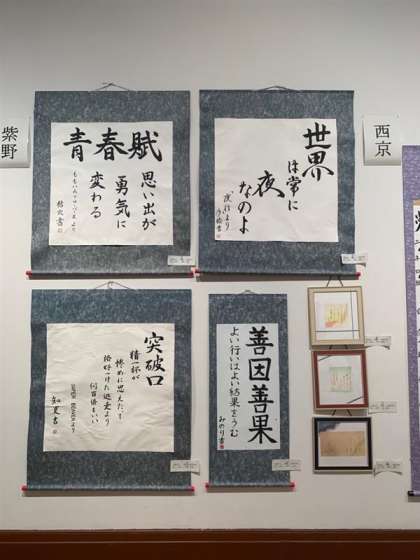 紫野
青春賦
思い出が
勇気に
変わる
ももいろクローバーZより
世界
は常に
夜
なのよ
夜行より
西京
突破口
精一杯が
惨めに思えたって
何百倍もいい
SUPER BEAVERより
知夏書
善因善果
よい行いはよい結果をうむ
みのり書